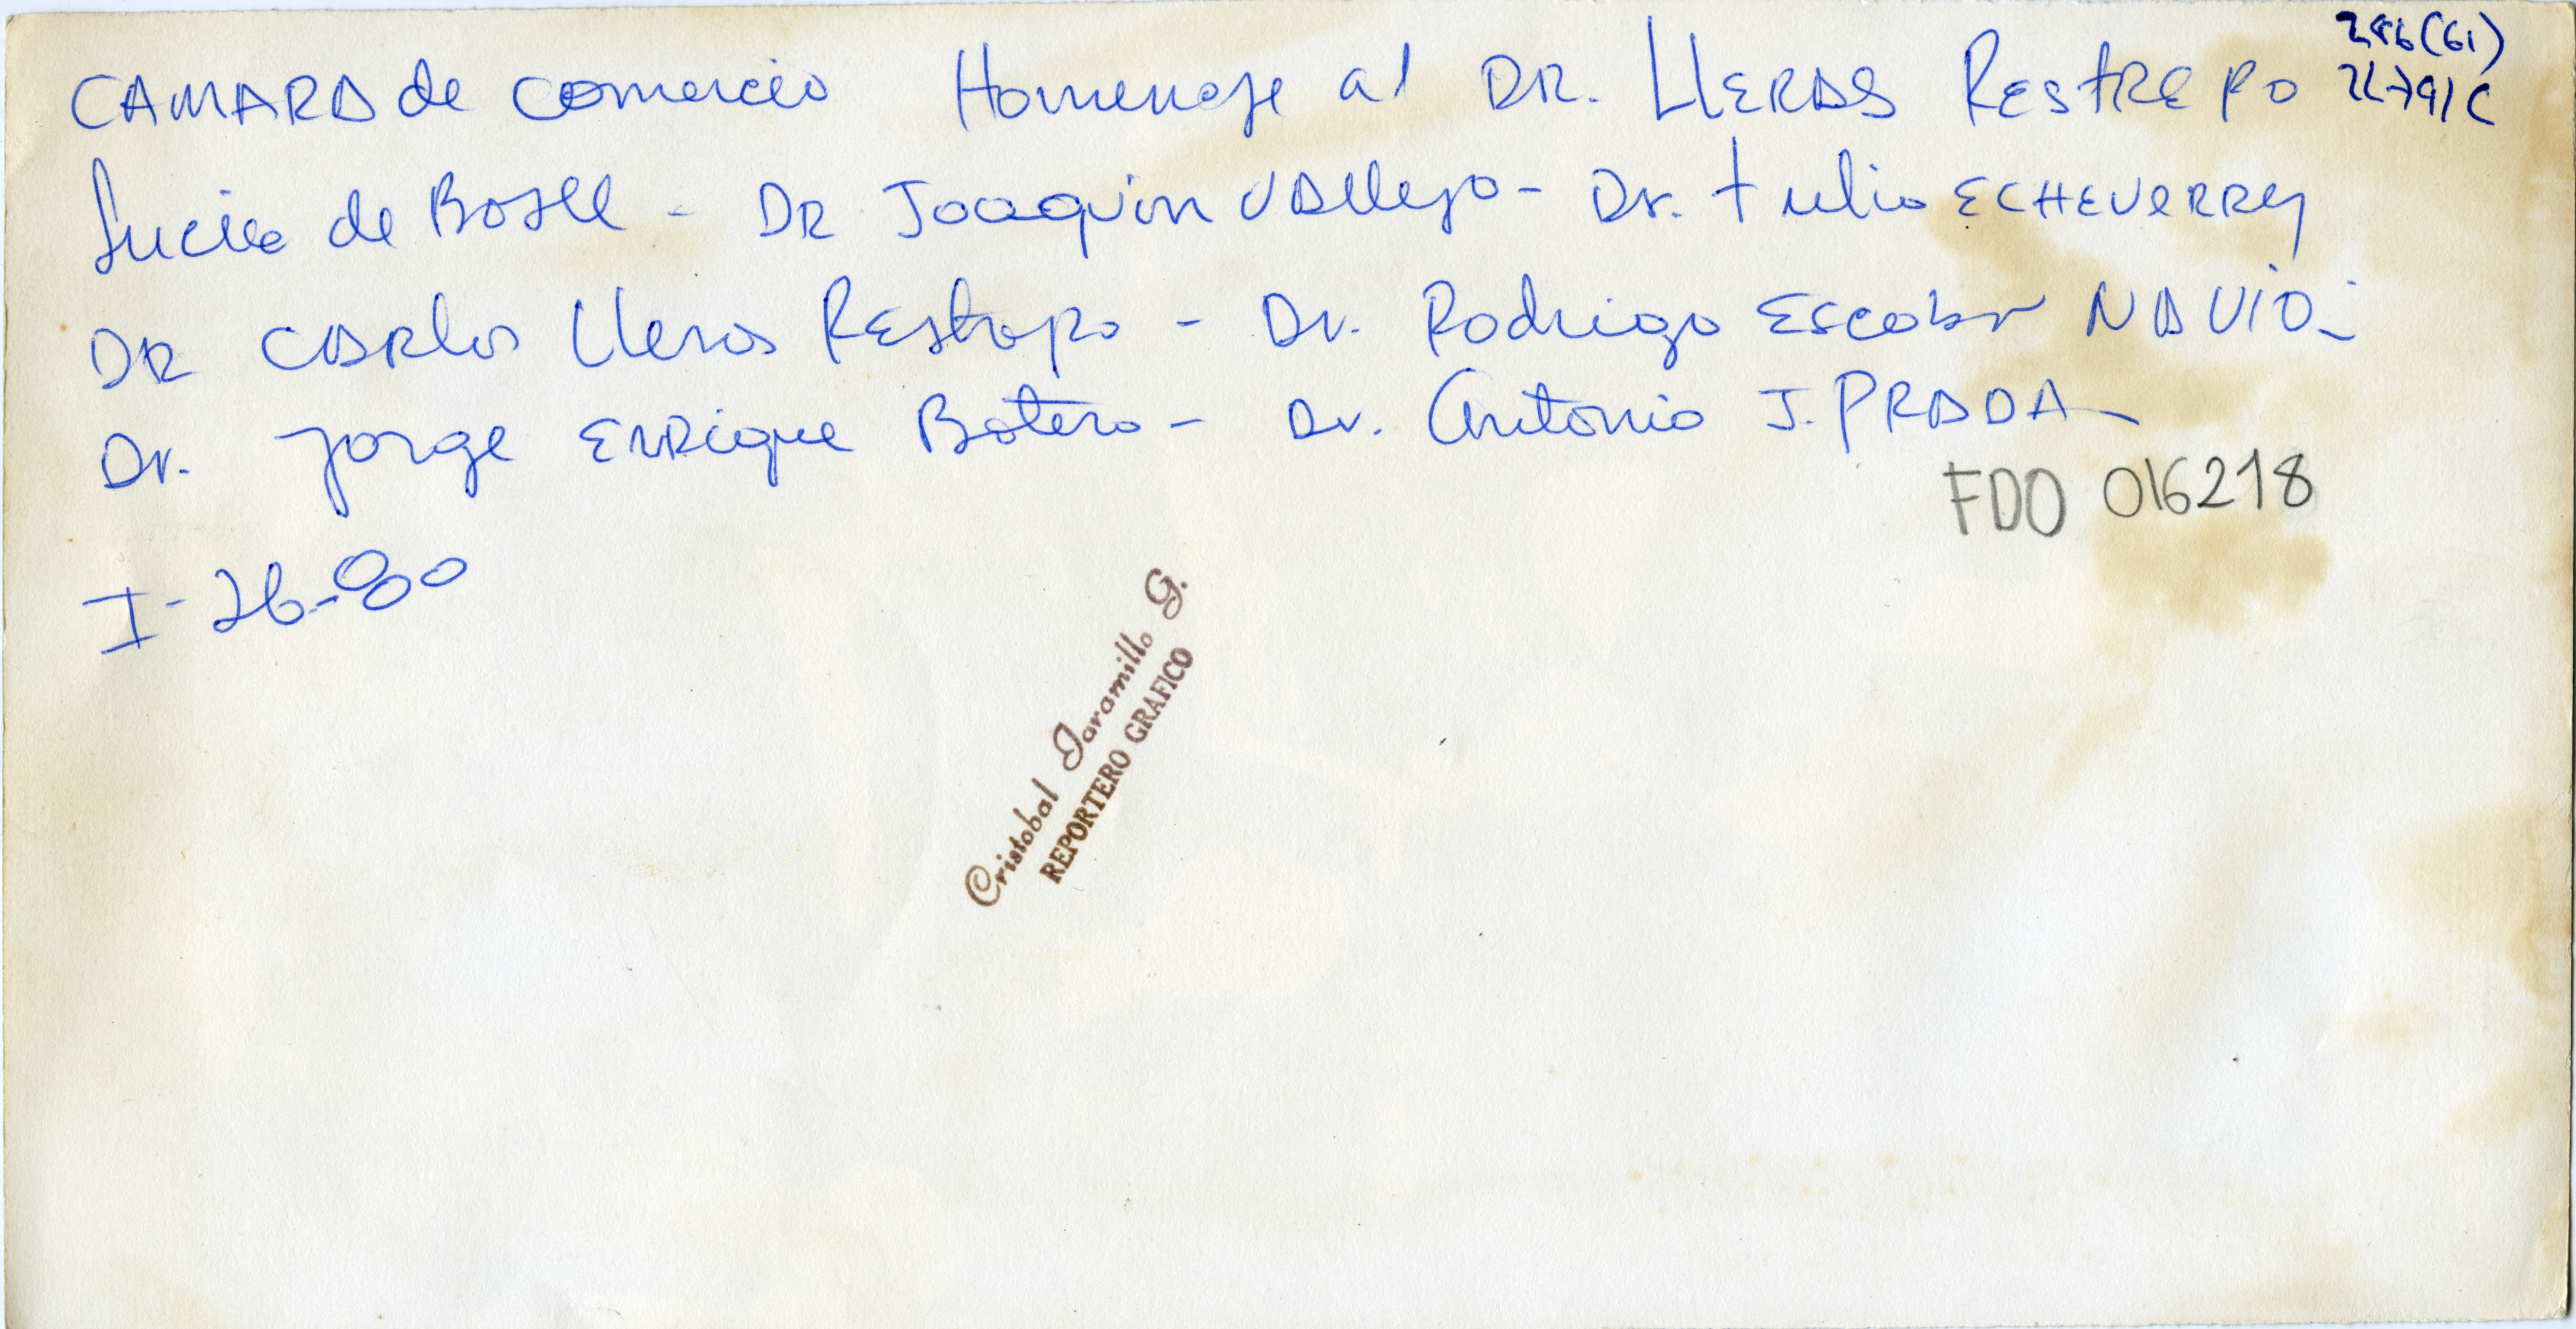 CAMARA de comercio Homenaje al DR. LLERAS RESTREPO
286(61)
Lucia de - DR Joaquin Vallejo - Dr. tulio ECHEVERRY
DR CARlos Lleras REstrepo - Dr. Rodrigo Escobar NAVIA -
Dr. Jorge ENRique Botero - Dr. Antonio J. PRADA
FDO 016218
I-26-80
Cristobal Jaramillo G.
REPORTERO GRAFICO